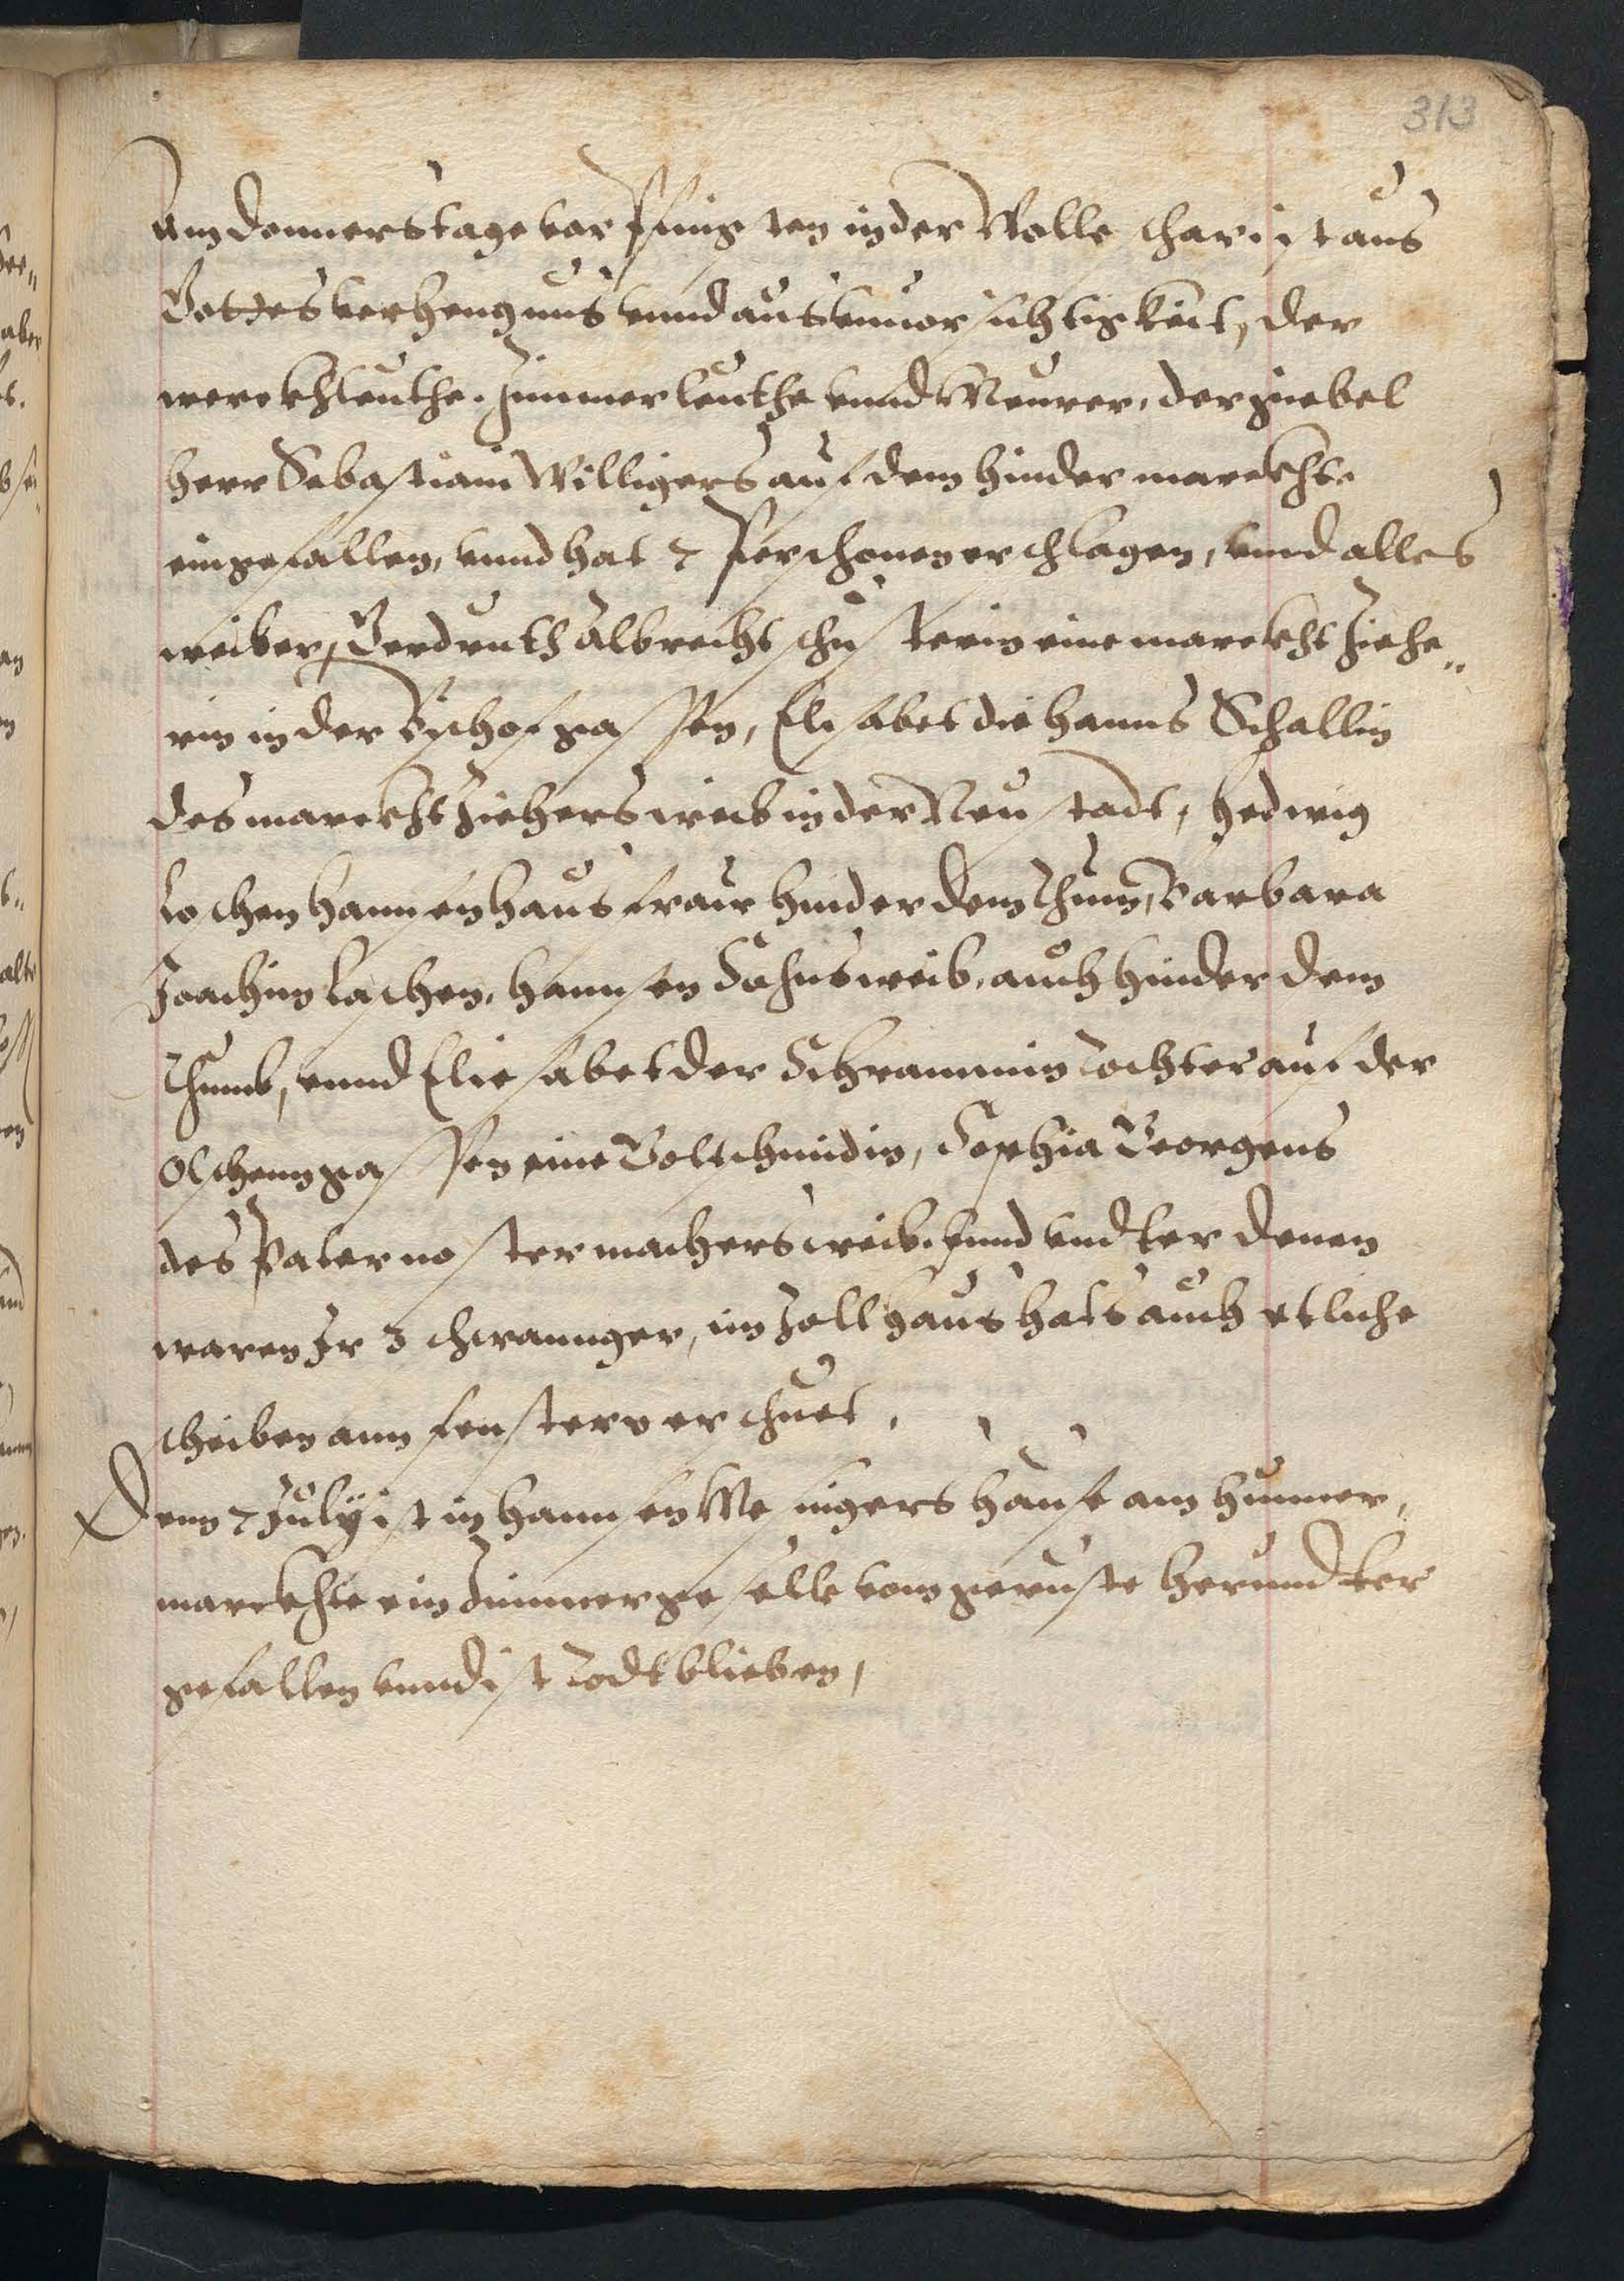 313
Am donnerstage vor Pfingsten in der Wollschar ist aus
Gottes verhengnus vnnd aus vnnuorsichtigkeit, der
werckhleuthe. Zimmerleuthe vnnd Meurer, der giebel
herr Sebastiani Willigers auf dem hindermarckhte
eingefallen, vnnd hat 7 Perschonen erschlagen, vnnd alles
weiber, Gerdruth Albrecht schusterin eine marckht Ziehe„
rin in der Bischofgassen, Elisabet die hanns Schallin
des marckht Ziehers weib in der Neustadt, Hedwig
Loschen hannsen hausfraw hinder dem Thum, Barbara
Joachim Laschen, hannsen Sohns weib, auch hinder dem
Thumb, vnnd Eliesabet der Schrammin Tochter auf der
Olschenngassen eine Goltschmidin, Sophia Georgens
des Paternostermachers weib. vnnd vndter denen
waren Jr 3 schwannger, im Zollhaus hats auch etliche
scheiben ann fenstern erschuet.
Denn 7 July ist in hannsen Messingers hause am hunner,
marckhte ein Zimmergeselle vom geruste herundter
gefallen vnnd ist Todt blieben,